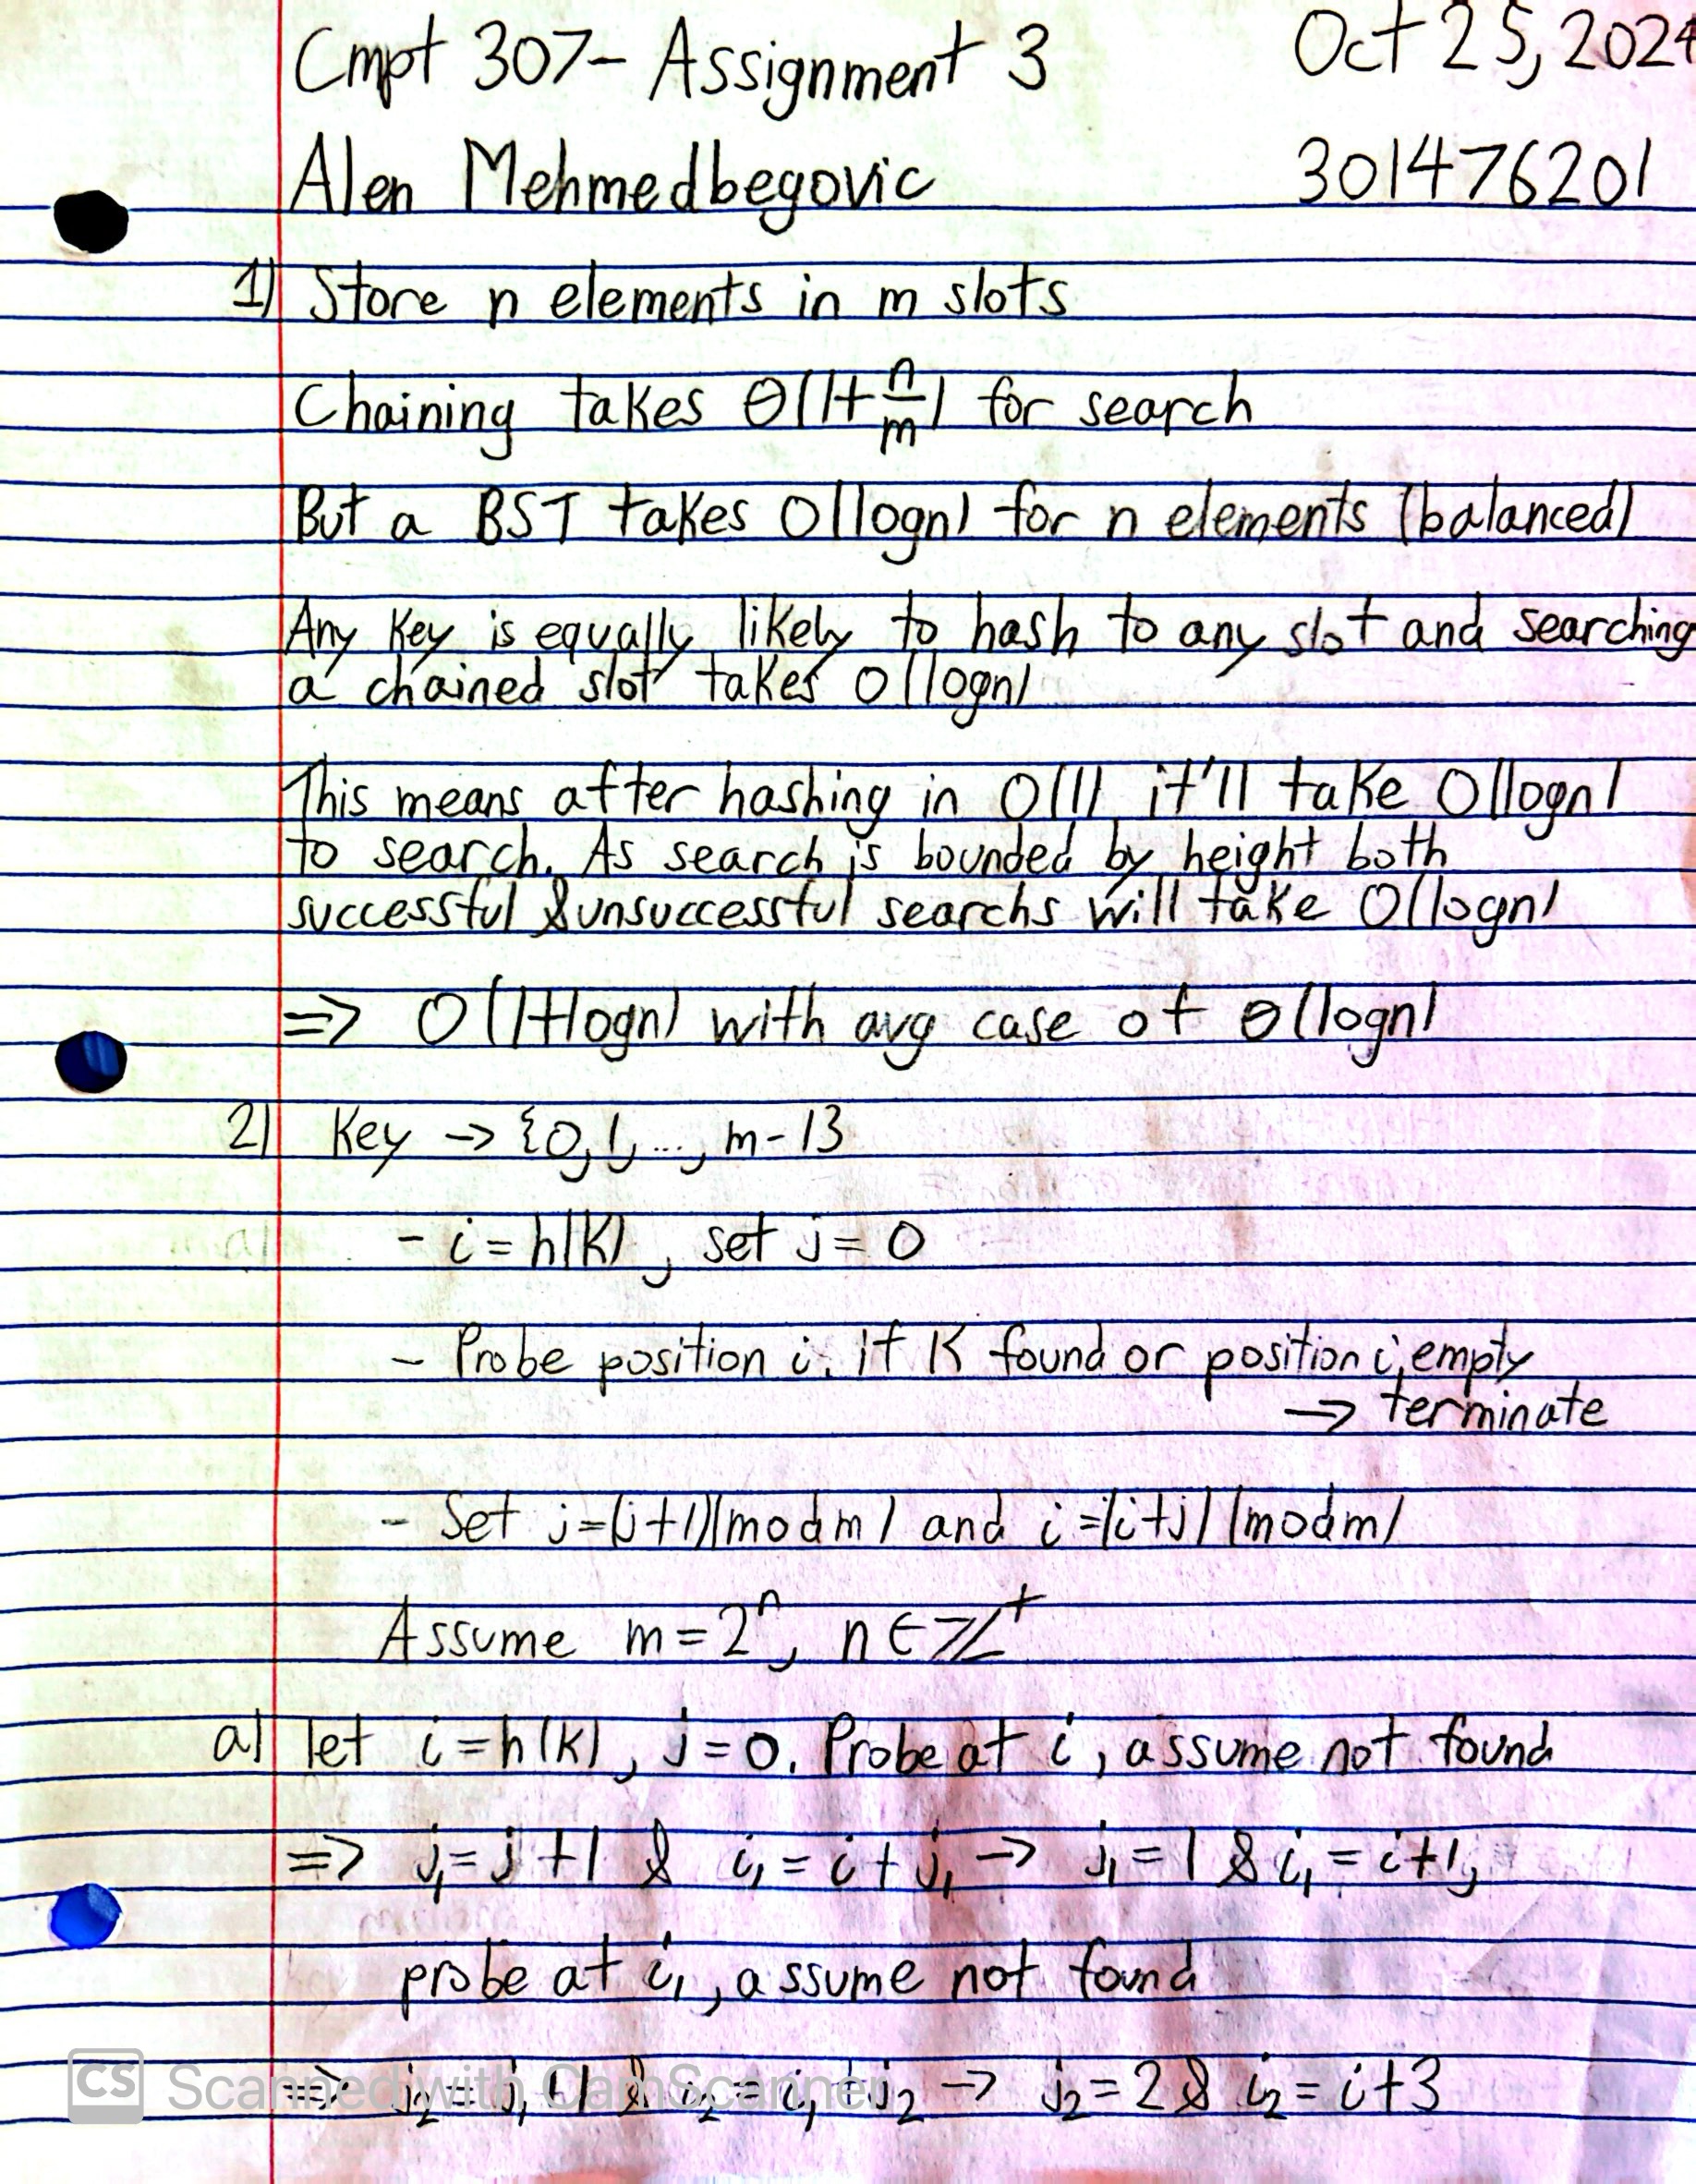 Cmpt 307- Assignment 3 Oct 25, 2024
Alen Mehmedbegovic 301476201
1) Store n elements in m slots
Chaining takes θ(1+n/m) for search
But a BST takes O(logn) for n elements (balanced)
Any key is equally likely to hash to any slot and searching
a chained slot takes O(logn)
This means after hashing in O(1) it'll take O(logn)
to search. As search is bounded by height both
successful & unsuccessful searchs will take O(logn)
=> O(1+logn) with avg case of θ(logn)
2) Key -> {0,1,...,m-1}
- i = h(k), set j = 0
- Probe position i. if K found or position i empty
-> terminate
- Set j=(j+1)(modm) and i=(i+j)(modm)
Assume m=2ⁿ, n∈ℤ⁺
a) let i=h(k), j=0. Probe at i, assume not found
=> j₁=j+1 & i₁=i+j₁ -> j₁=1 & i₁=i+1,
probe at i₁, assume not found
=> j₂=j₁+1 & i₂=i₁+j₂ -> j₂=2 & i₂=i+3
CS Scanned with CamScanner